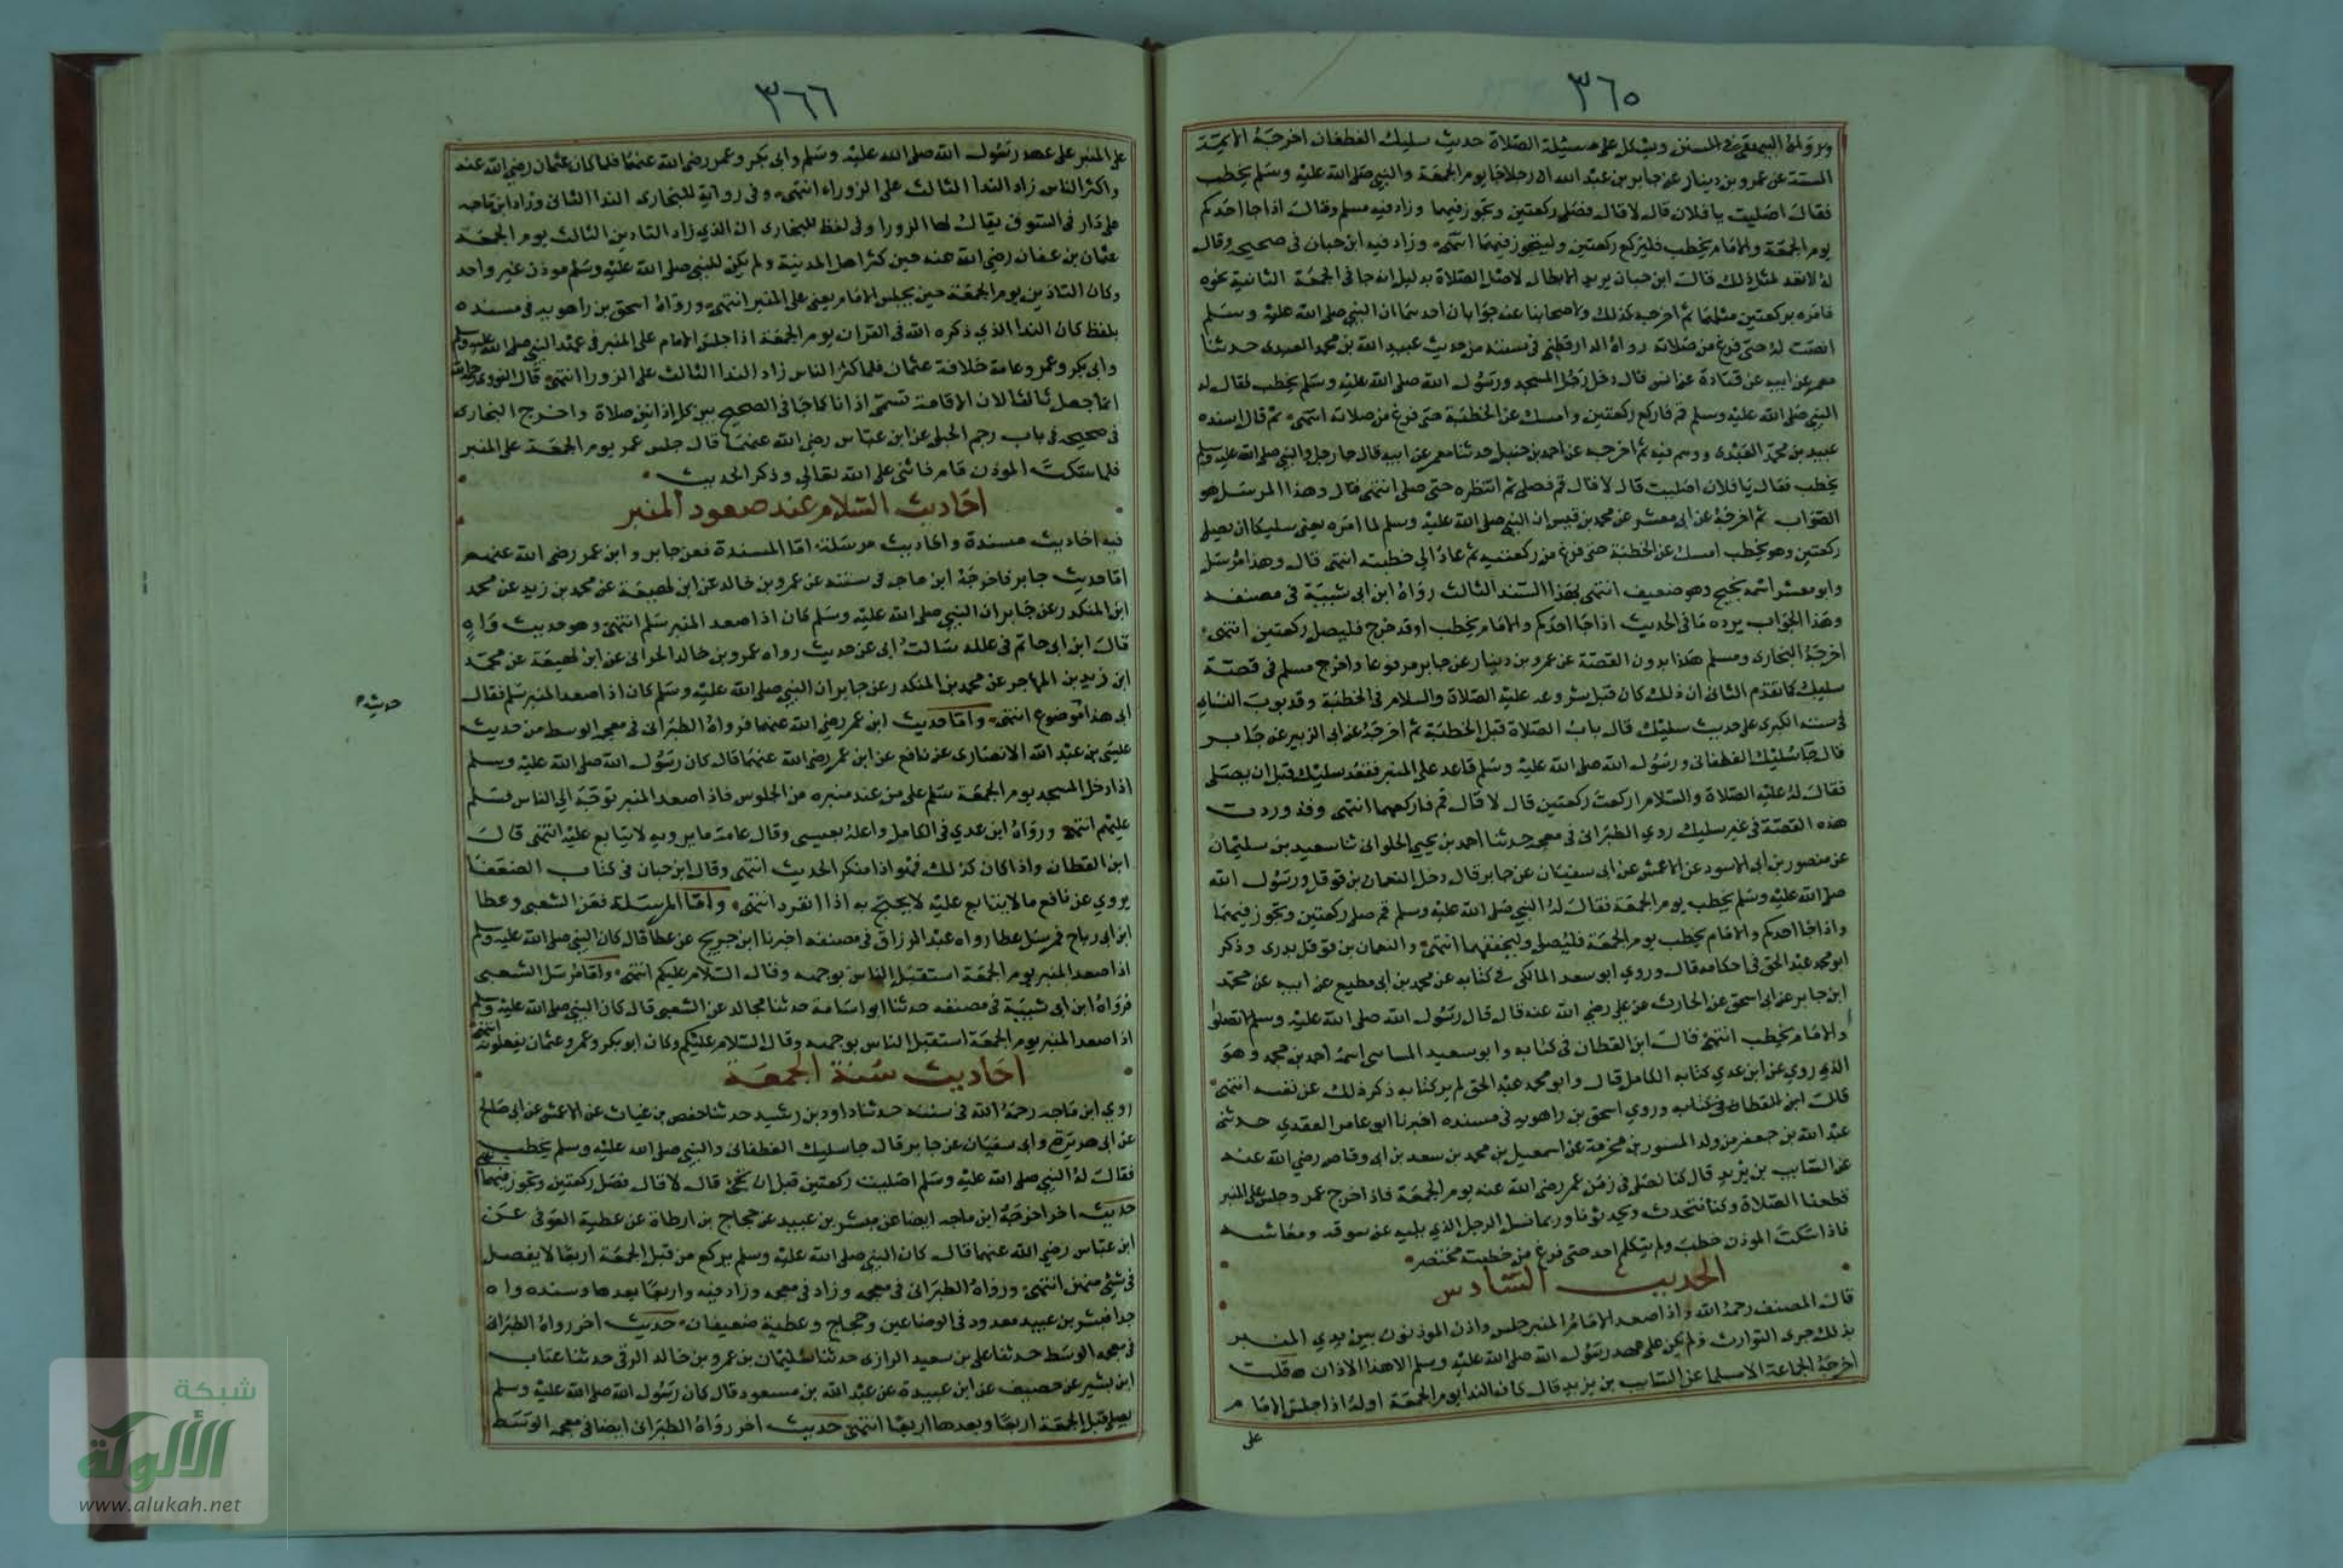 ٣٦٥
ورواه البيهقي في السنن ويشكل على مسئلة الصلاة حديث سليك الغطفان اخرجه الايمة
الستة عن عمرو بن دينار عن جابر بن عبد الله ان رجلا جا يوم الجمعة والنبي صلى الله عليه وسلم يخطب
فقال اصليت يا فلان قال لا قال فصل ركعتين وتجوز فيهما وزاد فيه مسلم وقال اذا جا احدكم
يوم الجمعة والامام يخطب فليركع ركعتين وليتجوز فيهما انتهى وزاد فيه ابن حبان في صحيحه وقال
له لا تعد لمثل ذلك قال ابن حبان يريد الابطا لا الصلاة بدليل انه جا في الجمعة الثانية نحوه
فامره بركعتين مثلهما ثم اخرجه كذلك ولاصحابنا عنه جوابان احدهما ان النبي صلى الله عليه وسلم
انصت له حتى فرغ من صلاته رواه الدارقطني في سننه من حديث عبيد الله بن محمد العبدى حدثنا
معمر عن ابيه عن قتادة عن انس قال دخل رجل المسجد ورسول الله صلى الله عليه وسلم يخطب فقال له
النبي صلى الله عليه وسلم قم فاركع ركعتين وامسك عن الخطبة حتى فرغ من صلاته انتهى ثم قال اسنده
عبيد بن محمد العبدى ووهم فيه ثم اخرجه عن احمد بن حنبل حدثنا معمر عن ابيه قال جا رجل والنبي صلى الله عليه وسلم
يخطب فقال يا فلان اصليت قال لا قال قم فصلى ثم انتظره حتى صلى انتهى قال وهذا المرسل هو
الصواب ثم اخرجه عن ابى معشر عن محمد بن قيس ان النبي صلى الله عليه وسلم لما امره يعني سليكا ان يصلى
ركعتين وهو يخطب امسك عن الخطبة حتى فرغ من ركعتيه ثم عاد الى خطبته انتهى قال وهذا مرسل
وابو معشر اسمه نجيح وهو ضعيف انتهى بهذا السند الثالث رواه ابن ابى شيبة في مصنفه
وهذا الجواب يرده ما في الحديث اذا جا احدكم والامام يخطب او قد خرج فليصل ركعتين انتهى
اخرجه البخارى ومسلم هكذا بدون القصة عن عمرو بن دينار عن جابر مرفوعا واخرج مسلم في قصة
سليك كما تقدم الثانى ان ذلك كان قبل شروعه عليه الصلاة والسلام في الخطبة وقد بوب النساى
في سننه الكبرى على حديث سليك قال باب الصلاة قبل الخطبة ثم اخرجه عن ابى الزبير عن جابر
قال جا سليك الغطفانى ورسول الله صلى الله عليه وسلم قاعد على المنبر فقعد سليك قبل ان يصلى
فقال له عليه الصلاة والسلام اركعت ركعتين قال لا قال قم فاركعهما انتهى وقد وردت
هذه القصة في غير سليك روي الطبرانى في معجمه حدثنا احمد بن يحيى الحلوانى ثنا سعيد بن سليمان
عن منصور بن ابى الاسود عن الاعمش عن ابى سفيان عن جابر قال دخل النعمان بن قوقل ورسول الله
صلى الله عليه وسلم يخطب يوم الجمعة فقال له النبي صلى الله عليه وسلم قم صل ركعتين وتجوز فيهما
واذا جا احدكم والامام يخطب يوم الجمعة فليصلى وليخففهما انتهى والنعمان بن قوقل بدرى وذكر
ابو محمد عبد الحق في احكامه قال وروي ابو سعد المالكى في كتابه عن محمد بن ابى مطيع عن ابيه عن محمد
ابن جابر عن ابى اسحق عن الحارث عن على رضي الله عنه قال قال رسول الله صلى الله عليه وسلم لا تصلوا
والامام يخطب انتهى قال ابن القطان في كتابه وابو سعيد الماسى اسمه احمد بن محمد وهو
الذي روي عن ابن عدي كتابه الكامل قال وابو محمد عبد الحق لم ير كتابه ذكر ذلك عن نفسه انتهى
قلت ابن القطان في كتابه وروي اسحق بن راهويه في مسنده اخبرنا ابو عامر العقدي حدثنى
عبد الله بن جعفر من ولد المسور بن مخرمة عن اسمعيل بن محمد بن سعد بن ابى وقاص رضي الله عنه
عن السايب بن يزيد قال كنا نصلى في زمن عمر رضي الله عنه يوم الجمعة فاذا خرج عمر وجلس على المنبر
قطعنا الصلاة وكنا نتحدث ويحدثونا وربما نسل الرجل الذي يليه عن سوقه ومعاشه
فاذا سكت الموذن خطب ولم يتكلم احد حتى فرغ من خطبته مختصر
الحديث السادس
قال المصنف رحمه الله واذا صعد الامام المنبر جلس واذن الموذنون بين يدي المنبر
بذلك جرى التوارث ولم يكن على عهد رسول الله صلى الله عليه وسلم الا هذا الاذان قلت
اخرجه الجماعة الا مسلما عن السايب بن يزيد قال كان الندا يوم الجمعة اوله اذا جلس الامام
على
٣٦٦
على المنبر على عهد رسول الله صلى الله عليه وسلم وابى بكر وعمر رضى الله عنهما فلما كان عثمان رضي الله عنه
واكثر الناس زاد الندا الثالث على الزوراء انتهى وفى رواية للبخارى الندا الثانى وزاد ابن ماجه
على دار في السوق يقال لها الزورا وفى لفظ للبخارى ان الذي زاد التاذين الثالث يوم الجمعة
عثمان بن عفان رضي الله عنه حين كثر اهل المدينة ولم يكن للنبي صلى الله عليه وسلم موذن غير واحد
وكان التاذين يوم الجمعة حين يجلس الامام يعنى على المنبر انتهى ورواه اسحق بن راهويه في مسنده
بلفظ كان الندا الذي ذكره الله في القران يوم الجمعة اذا جلس الامام على المنبر في عهد النبي صلى الله عليه وسلم
وابى بكر وعمر وعامة خلافة عثمان فلما كثر الناس زاد الندا الثالث على الزورا انتهى قال النووى
انما جعل ثالثا لان الاقامة تسمى اذانا كما جا في الصحيح بين كل اذانين صلاة واخرج البخارى
في صحيحه في باب رجم الحبلى عن ابن عباس رضي الله عنهما قال جلس عمر يوم الجمعة على المنبر
فلما سكت الموذن قام فاثنى على الله تعالى وذكر الحديث
احاديث السلام عند صعود المنبر
فيه احاديث مسندة واحاديث مرسلة اما المسندة فعن جابر وابن عمر رضى الله عنهم
اما حديث جابر فاخرجه ابن ماجه في سننه عن عمرو بن خالد عن ابن لهيعة عن محمد بن زيد عن محمد
ابن المنكدر عن جابر ان النبي صلى الله عليه وسلم كان اذا صعد المنبر سلم انتهى وهو حديث واه
قال ابن ابى حاتم في علله سالت ابى عن حديث رواه عمرو بن خالد الحرانى عن ابن لهيعة عن محمد
ابن زيد بن المهاجر عن محمد بن المنكدر عن جابر ان النبي صلى الله عليه وسلم كان اذا صعد المنبر سلم فقال
حديث
ابى هذا موضوع انتهى واما حديث ابن عمر رضي الله عنهما فرواه الطبرانى في معجمه الوسط من حديث
عيسى بن عبد الله الانصارى عن نافع عن ابن عمر رضي الله عنهما قال كان رسول الله صلى الله عليه وسلم
اذا دخل المسجد يوم الجمعة سلم على من عند منبره من الجلوس فاذا صعد المنبر توجه الى الناس فسلم
عليهم انتهى ورواه ابن عدي في الكامل واعله بعيسى وقال عامة ما يرويه لا يتابع عليه انتهى قال
ابن القطان واذا كان كذلك فهو اذا منكر الحديث انتهى وقال ابن حبان في كتاب الضعفا
يروي عن نافع ما لا يتابع عليه لا يحتج به اذا انفرد انتهى واما المرسلة فعن الشعبى وعطا
ابن ابى رباح فمرسل عطا رواه عبد الرزاق في مصنفه اخبرنا ابن جريج عن عطا قال كان النبي صلى الله عليه وسلم
اذا صعد المنبر يوم الجمعة استقبل الناس بوجهه وقال السلام عليكم انتهى واما مرسل الشعبى
فرواه ابن ابى شيبة في مصنفه حدثنا ابو اسامة حدثنا مجالد عن الشعبى قال كان النبي صلى الله عليه وسلم
اذا صعد المنبر يوم الجمعة استقبل الناس بوجهه وقال السلام عليكم وكان ابو بكر وعمر وعثمان يفعلونه انتهى
احاديث سنة الجمعة
روي ابن ماجه رحمه الله في سننه حدثنا داود بن رشيد حدثنا حفص بن غياث عن الاعمش عن ابى صالح
عن ابى هريرة وابى سفيان عن جابر قال جا سليك الغطفانى والنبي صلى الله عليه وسلم يخطب
فقال له النبي صلى الله عليه وسلم اصليت ركعتين قبل ان تجئ قال لا قال فصل ركعتين وتجوز فيهما
حديث اخر اخرجه ابن ماجه ايضا عن مبشر بن عبيد عن حجاج بن ارطاة عن عطية العوفى عن
ابن عباس رضي الله عنهما قال كان النبي صلى الله عليه وسلم يركع من قبل الجمعة اربعا لا يفصل
في شئ منهن انتهى ورواه الطبرانى في معجمه وزاد في معجمه وزاد فيه واربعا بعدها وسنده واه
جدا فمبشر بن عبيد معدود في الوضاعين وحجاج وعطية ضعيفان حديث اخر رواه الطبرانى
في معجمه الوسط حدثنا على بن سعيد الرازى حدثنا سليمان بن عمرو بن خالد الرقى حدثنا عتاب
ابن بشير عن خصيف عن ابن عبيدة عن عبد الله بن مسعود قال كان رسول الله صلى الله عليه وسلم
يصلى قبل الجمعة اربعا وبعدها اربعا انتهى حديث اخر رواه الطبرانى ايضا في معجمه الوسط
شبكة
الألوكة
www.alukah.net